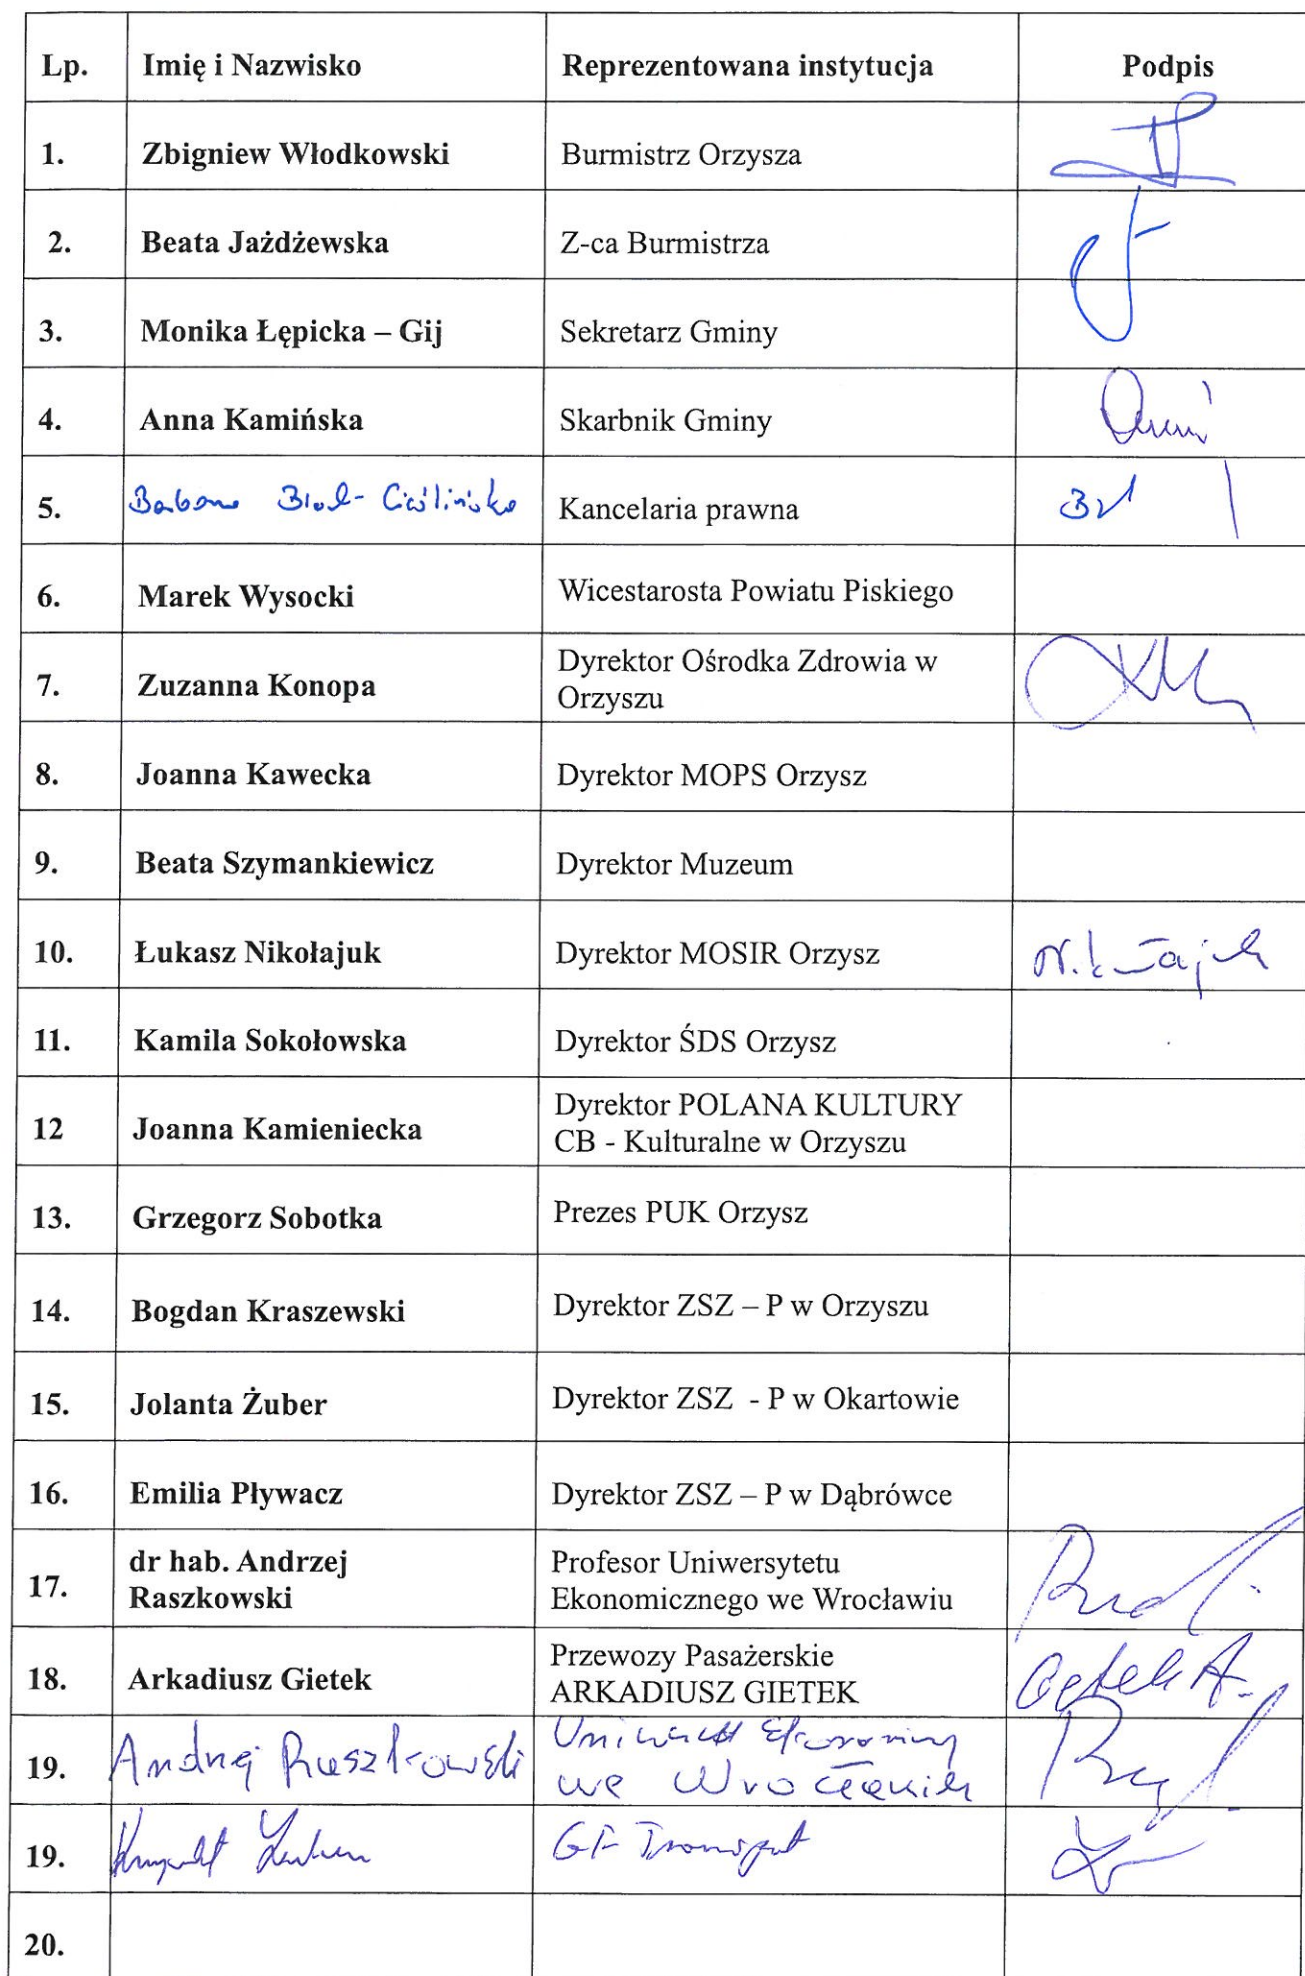 Lp. Imię i Nazwisko Reprezentowana instytucja Podpis
1. Zbigniew Włodkowski Burmistrz Orzysza
2. Beata Jażdżewska Z-ca Burmistrza
3. Monika Łępicka – Gij Sekretarz Gminy
4. Anna Kamińska Skarbnik Gminy
5. Kancelaria prawna
6. Marek Wysocki Wicestarosta Powiatu Piskiego
7. Zuzanna Konopa Dyrektor Ośrodka Zdrowia w
Orzyszu
8. Joanna Kawecka Dyrektor MOPS Orzysz
9. Beata Szymankiewicz Dyrektor Muzeum
10. Łukasz Nikołajuk Dyrektor MOSIR Orzysz
11. Kamila Sokołowska Dyrektor ŚDS Orzysz
12 Joanna Kamieniecka Dyrektor POLANA KULTURY
CB - Kulturalne w Orzyszu
13. Grzegorz Sobotka Prezes PUK Orzysz
14. Bogdan Kraszewski Dyrektor ZSZ – P w Orzyszu
15. Jolanta Żuber Dyrektor ZSZ - P w Okartowie
16. Emilia Pływacz Dyrektor ZSZ – P w Dąbrówce
17. dr hab. Andrzej
Raszkowski
Profesor Uniwersytetu
Ekonomicznego we Wrocławiu
18. Arkadiusz Gietek Przewozy Pasażerskie
ARKADIUSZ GIETEK Gietek A.
19. Andrzej Raszkowski
we Wrocławiu
19.
20.